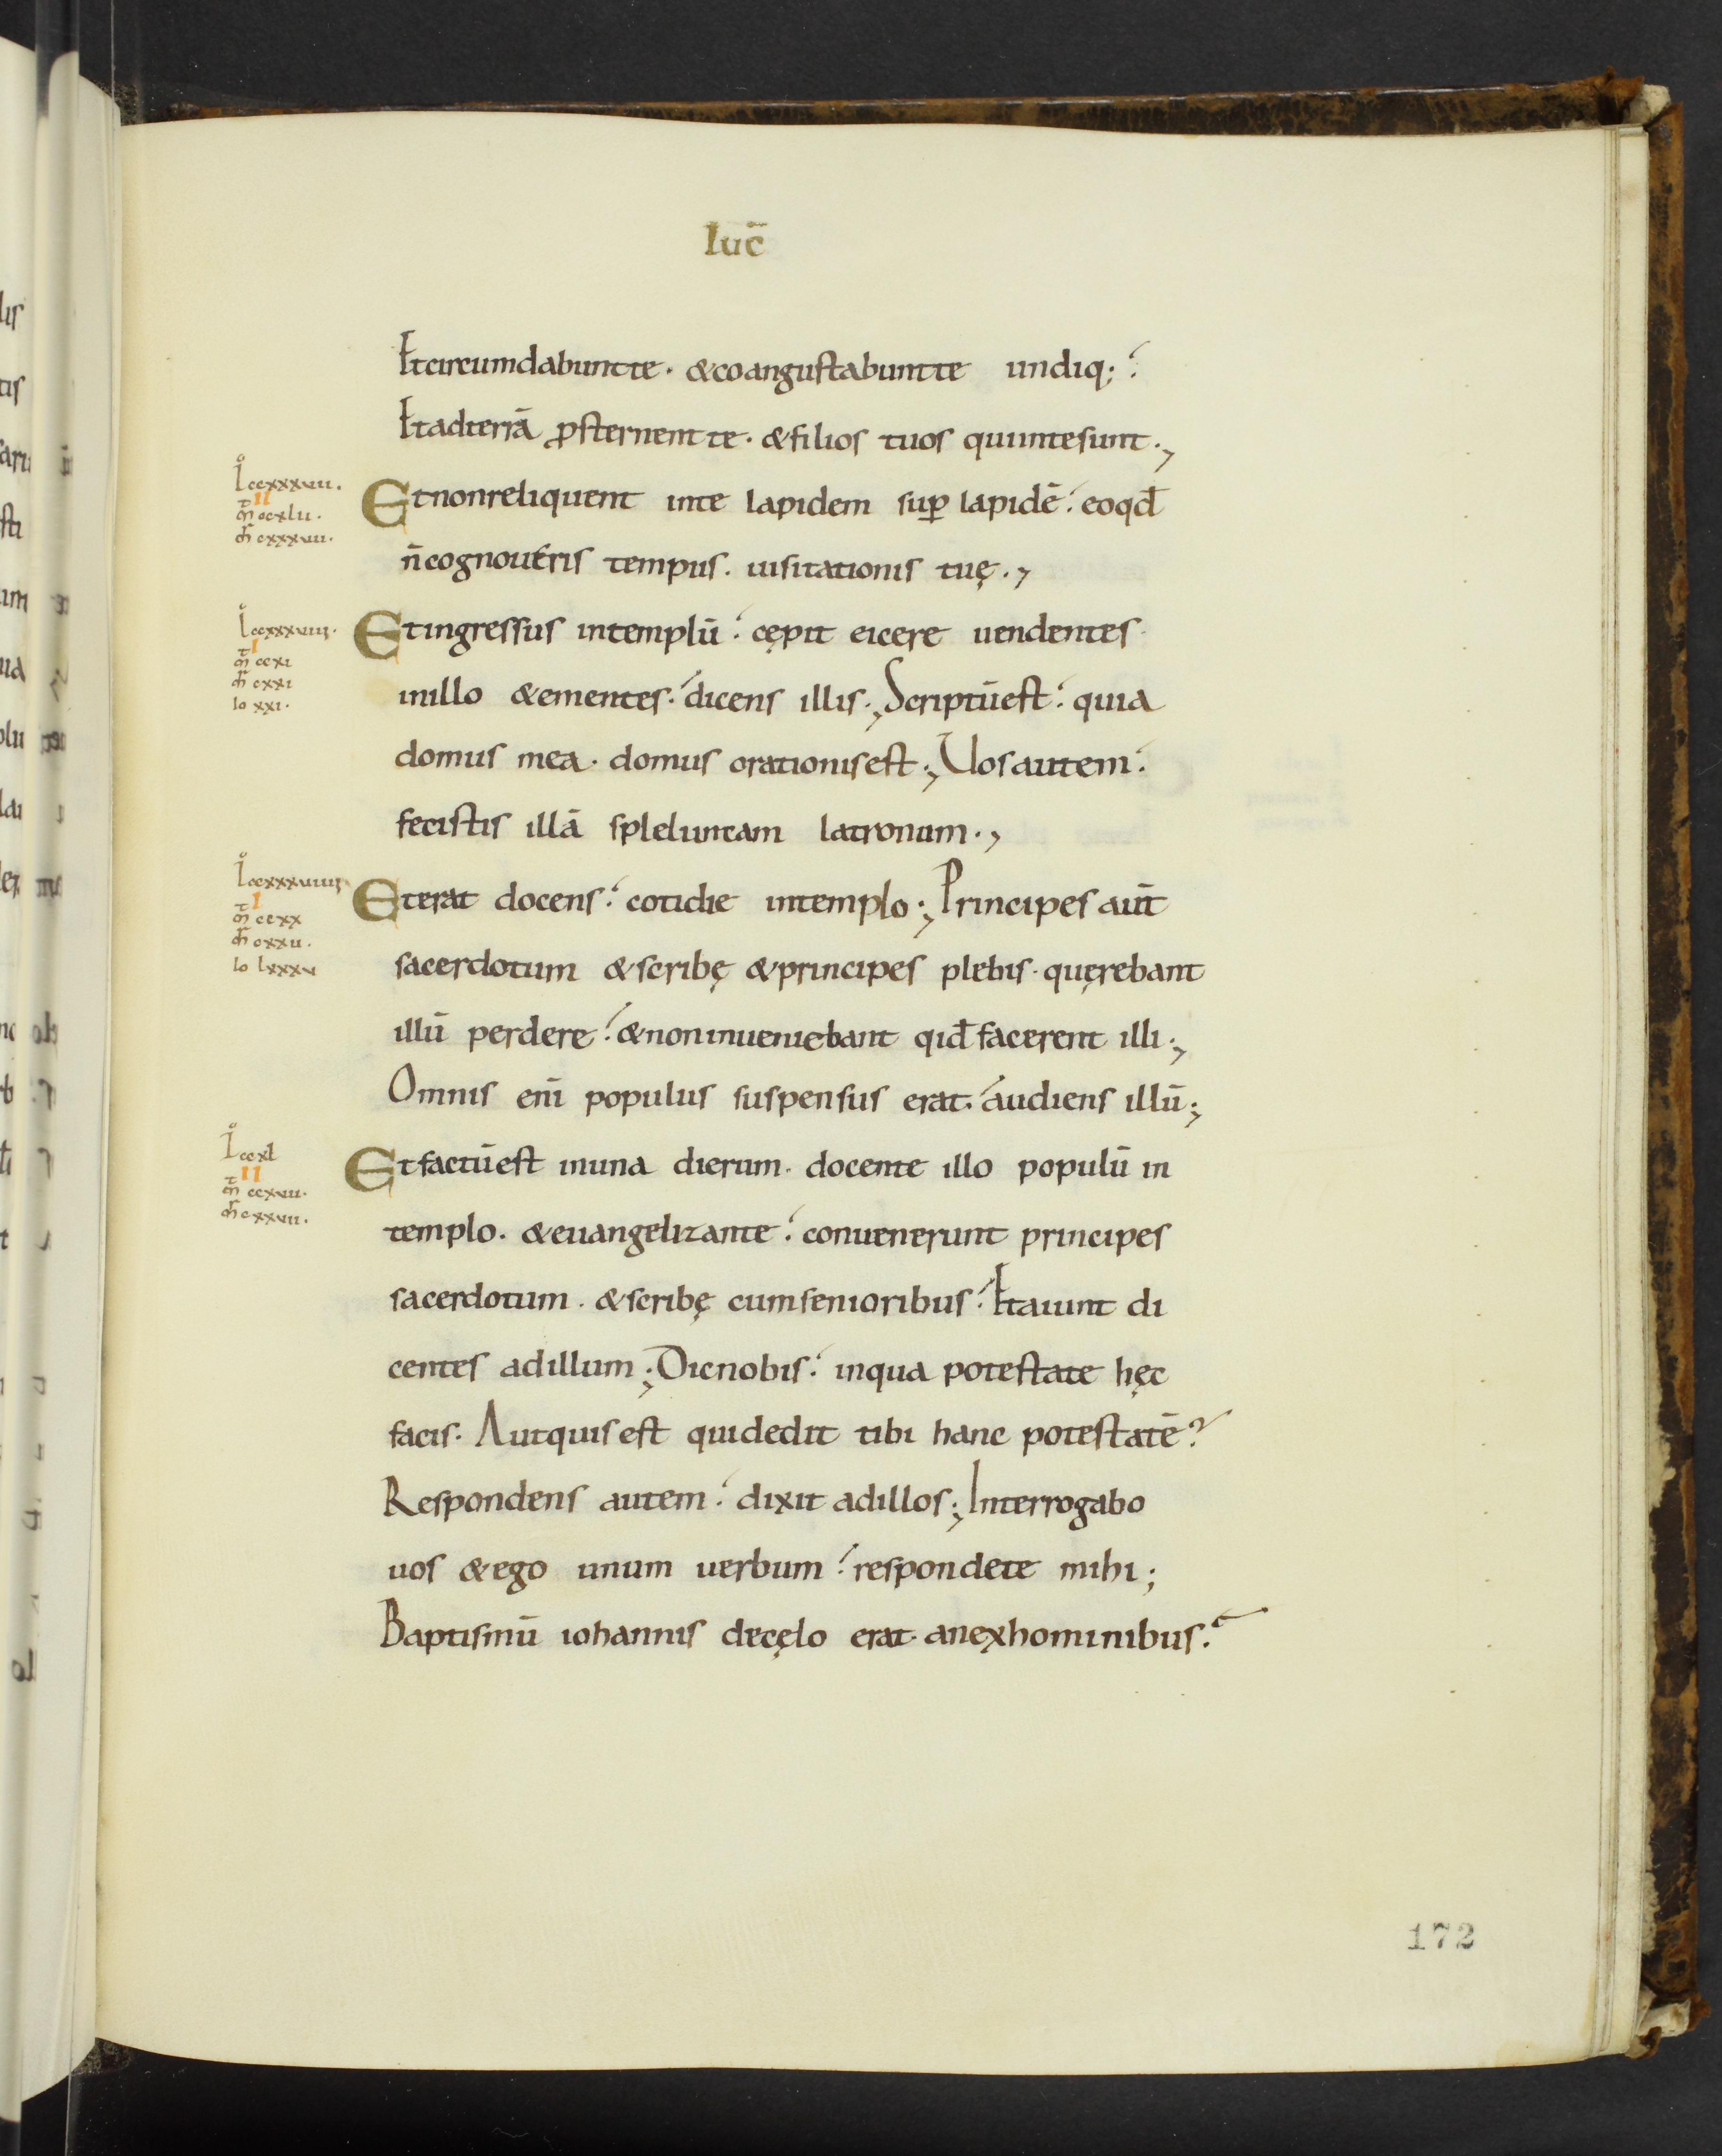 luc̄
Et circumdabunt te · & coangustabunt te undiq;
Et ad terrā ꝓsternent te · & filios tuos qui in te sunt ·,
L ccxxxvii.
II
mt̄ ccxlii.
mr̄ cxxxvii.
Et non reliquent in te lapidem suꝑ lapidē : eo qđ
n̄ cognoueris tempus · uisitationis tuę ·,
L ccxxxviii.
I
mt̄ ccxi
mr̄ cxxi
Io xxi.
Et ingressus in templū : cępit eicere uendentes
in illo & ementes : dicens illis ·, Scriptū est : quia
domus mea · domus orationis est ·, Uos autem :
fecistis illā spleluncam latronum ·,
L ccxxxviiii
I
mt̄ ccxx
mr̄ cxxii.
Io lxxxv
Et erat docens : cotidie in templo ; Principes aūt
sacerdotum & scribę & principes plebis · quęrebant
illū perdere : & non inueniebant qid̄ facerent illi ;
Omnis enī populus suspensus erat : audiens illū ;
L ccxl
II
mt̄ ccxvii.
mr̄ cxxvii.
Et factū est in una dierum · docente illo populū in
templo · & euangelizante : conuenerunt principes
sacerdotum · & scribę cum senioribus : Et aiunt di
centes ad illum ; Dic nobis : in qua potestate hęc
facis · Aut quis est qui dedit tibi hanc potestatē ?
Respondens autem : dixit ad illos ; Interrogabo
uos & ego unum uerbum : respondete mihi ;
Baptismū iohannis de cęlo erat · an ex hominibus ?
172